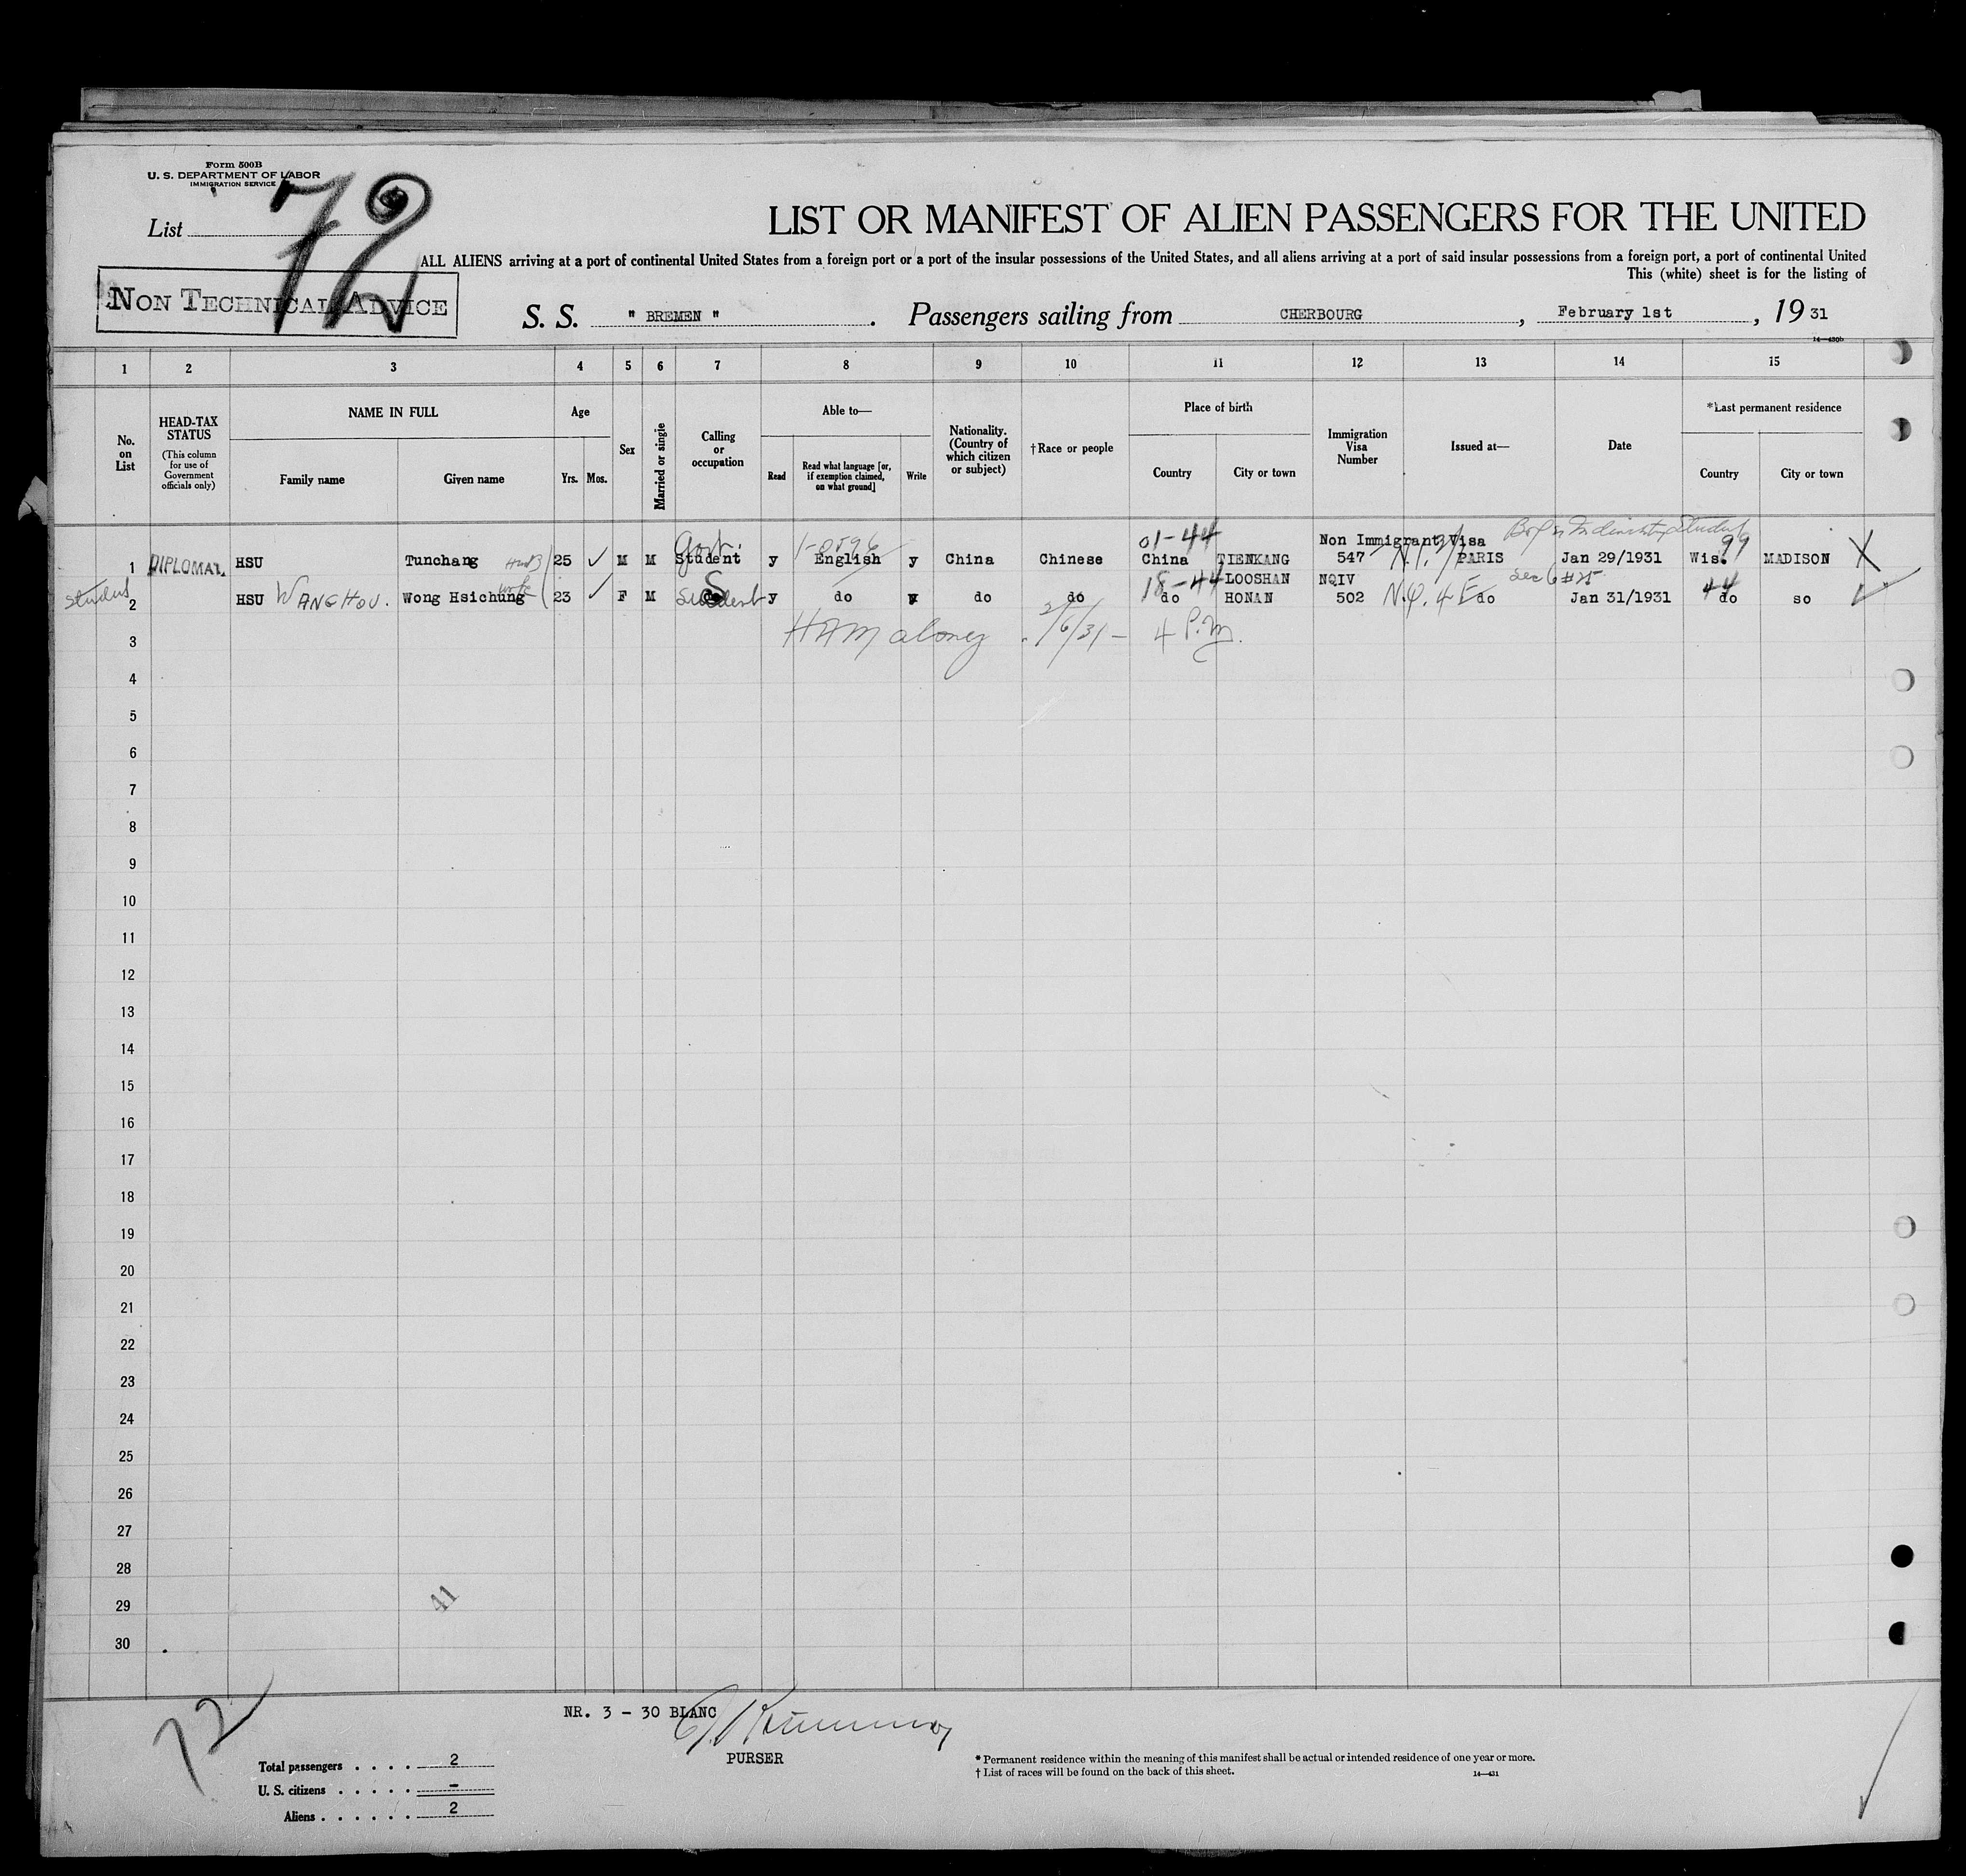 Form 500B
U. S. DEPARTMENT OF LABOR
IMMIGRATION SERVICE
List 72
LIST OR MANIFEST OF ALIEN PASSENGERS FOR THE UNITED
ALL ALIENS arriving at a port of continental United States from a foreign port or a port of the insular possessions of the United States, and all aliens arriving at a port of said insular possessions from a foreign port, a port of continental United
This (white) sheet is for the listing of
NON TECHNICAL ADVICE
S. S. " BREMEN ". Passengers sailing from CHERBOURG, February 1st, 19 31
14—430b
1 2 3 4 5 6 7 8 9 10 11 12 13 14 15
No. on List
HEAD-TAX STATUS
(This column for use of Government officials only)
NAME IN FULL
Family name
Given name
Age
Yrs. Mos.
Sex
Married or single
Calling or occupation
Able to—
Read
Read what language [or, if exemption claimed, on what ground]
Write
Nationality. (Country of which citizen or subject)
†Race or people
Place of birth
Country
City or town
Immigration Visa Number
Issued at—
Date
*Last permanent residence
Country
City or town
Govt. 1-0596 01-44 Non Immigrant Visa Student 99
1 DIPLOMAT HSU Tunchang 25 ✓ M M Student y English y China Chinese China TIENKANG 547 PARIS Jan 29/1931 Wis. MADISON X
Student wife S 18-44 LOOSHAN NQIV Sec 6 #25 44
2 HSU WANGHOU. Wong Hsichung 23 ✓ F M do Student y do y do do do HONAN 502 N.Q. 4 E do Jan 31/1931 do so ✓
3 HAMaloney 2/6/31- 4 P.M.
4
5
6
7
8
9
10
11
12
13
14
15
16
17
18
19
20
21
22
23
24
25
26
27
28
29
30
41
72
NR. 3 - 30 BLANC
PURSER
Total passengers . . . . 2
U. S. citizens . . . . . –
Aliens . . . . . . 2
* Permanent residence within the meaning of this manifest shall be actual or intended residence of one year or more.
† List of races will be found on the back of this sheet.
14—431